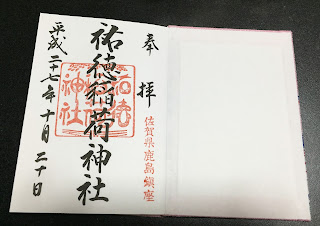 奉拝
佐賀県鹿島鎮座
祐徳稲荷神社
平成二十七年十月二十日